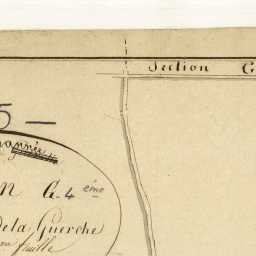 Section G
5 —
G. 4 ème
de la Guerche
feuille